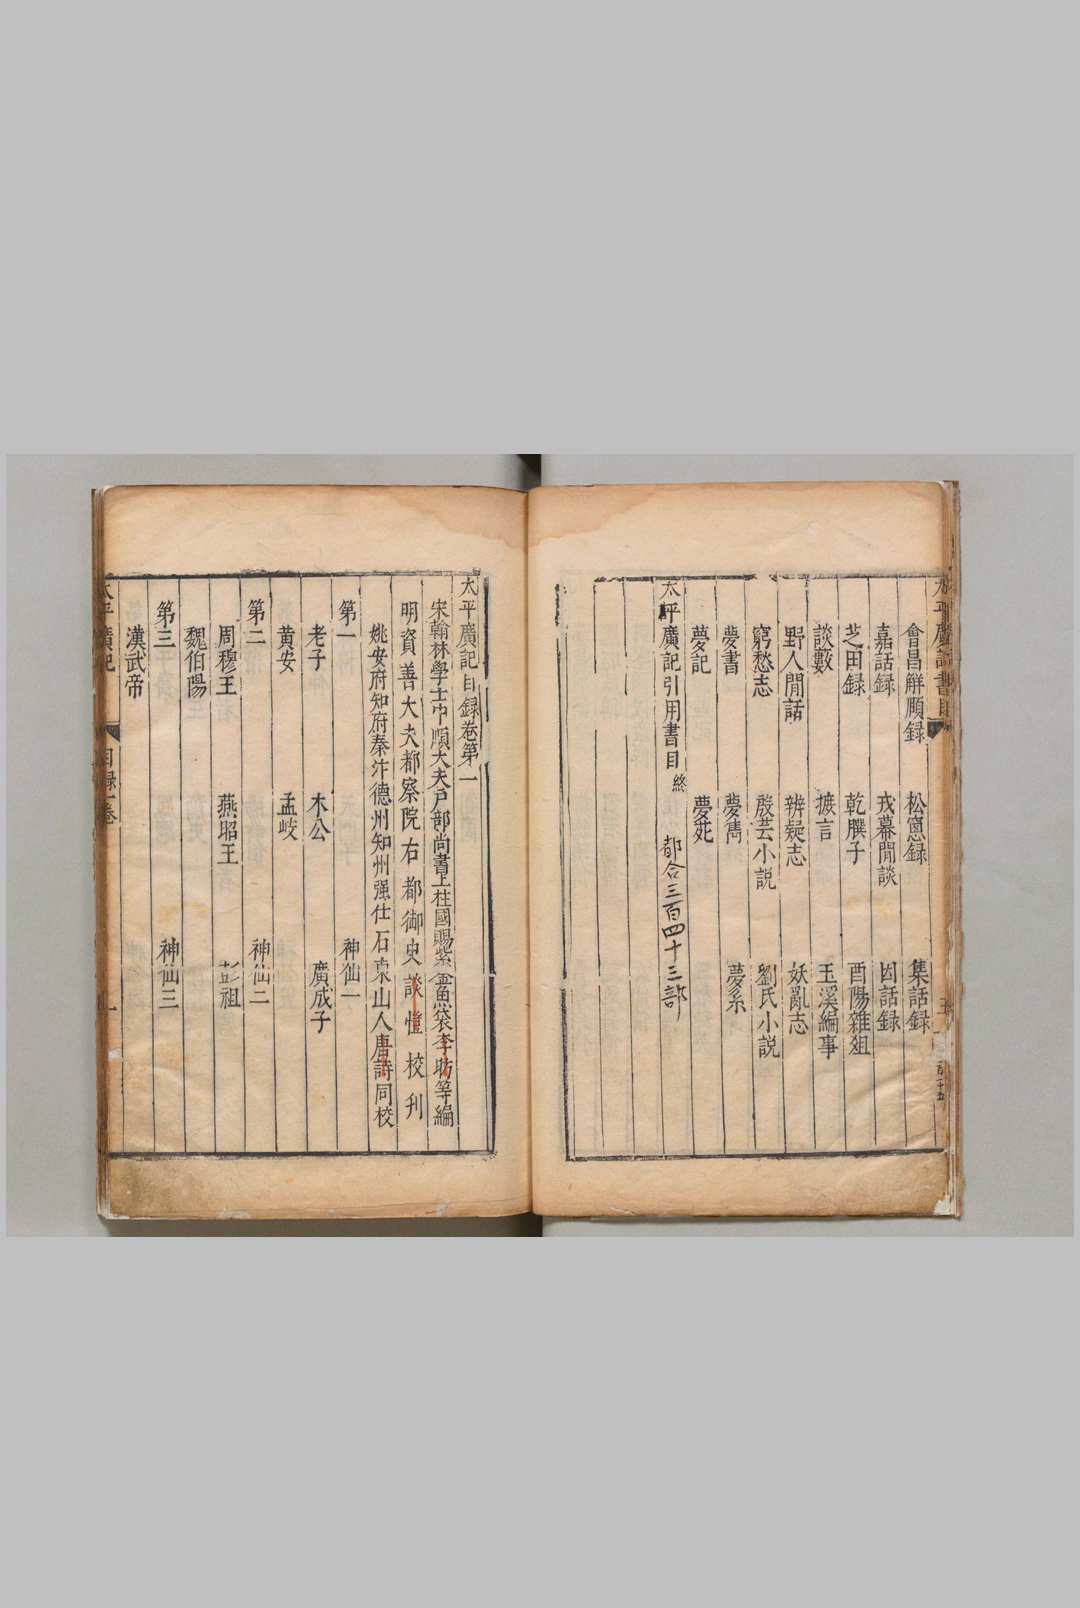 太平廣記書目
會昌解頤録 松窻録 集話録
嘉話録 戎幕閒談 因話録
芝田録 乾𦠆子 酉陽雜俎
談藪 摭言 玉溪編事
野人閒話 辨疑志 妖亂志
窮愁志 殷芸小説 劉氏小説
夢書 夢雋 夢系
夢記 夢苑
太平廣記引用書目終 都合三百四十三部
太平廣記目録卷第一
宋翰林學士中順大夫户部尚書上柱國賜紫金魚袋李昉等編
明資善大夫都察院右都御史談愷校刊
姚安府知府秦汴德州知州强仕石東山人唐詩同校
第一 神仙一
老子 木公 廣成子
黄安 孟岐
第二 神仙二
周穆王 燕昭王 彭祖
魏伯陽
第三 神仙三
漢武帝
太平廣記 目録一卷 一